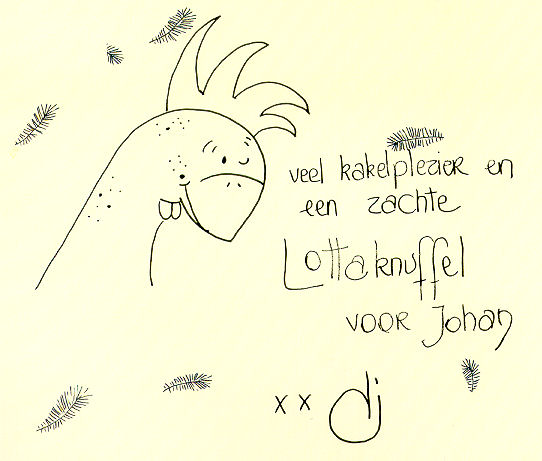 veel kakelplezier en
een zachte
Lottaknuffel
voor Johan
x x dj